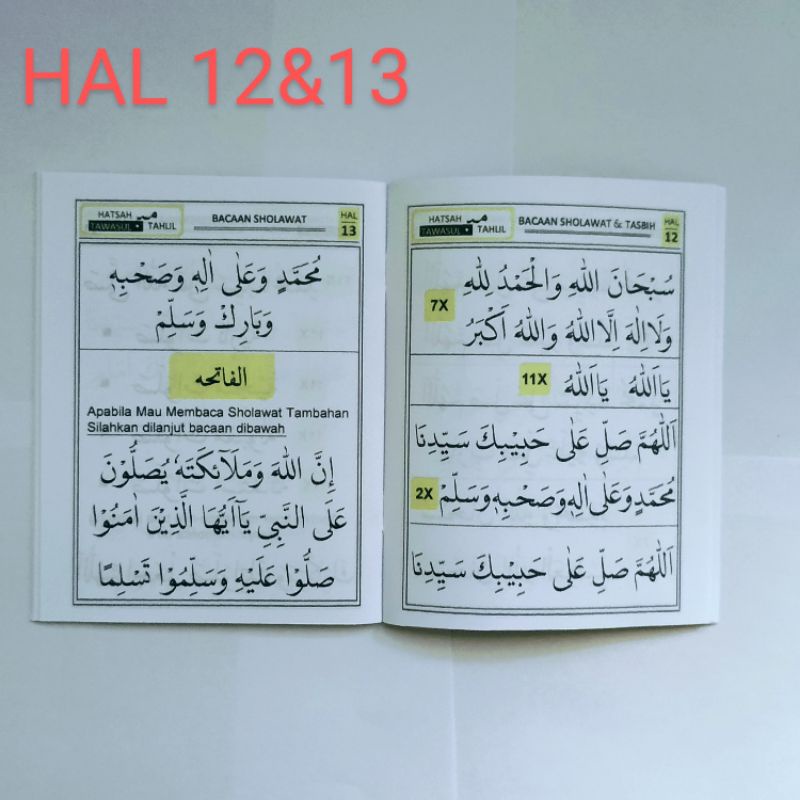 HAL 12&13
HATSAH
TAWASUL • TAHLIL
BACAAN SHOLAWAT & TASBIH
HAL
12
سُبْحَانَ اللهِ وَالْحَمْدُ لِلّٰهِ
7X
وَلَااِلٰهَ اِلَّااللهُ وَاللهُ اَكْبَرُ
يَااَللهُ يَااَللهُ
11X
اَللّٰهُمَّ صَلِّ عَلٰى حَبِيْبِكَ سَيِّدِنَا
مُحَمَّدٍ وَعَلٰى اٰلِهٖ وَصَحْبِهٖ وَسَلِّمْ
2X
اَللّٰهُمَّ صَلِّ عَلٰى حَبِيْبِكَ سَيِّدِنَا
HATSAH
TAWASUL • TAHLIL
BACAAN SHOLAWAT
HAL
13
مُحَمَّدٍ وَعَلٰى اٰلِهٖ وَصَحْبِهٖ
وَبَارِكْ وَسَلِّمْ
الفاتحه
Apabila Mau Membaca Sholawat Tambahan
Silahkan dilanjut bacaan dibawah
إِنَّ اللهَ وَمَلَآئِكَتَهٗ يُصَلُّوْنَ
عَلَى النَّبِيِّ يَآاَيُّهَا الَّذِيْنَ اٰمَنُوْا
صَلُّوْا عَلَيْهِ وَسَلِّمُوْا تَسْلِمًا